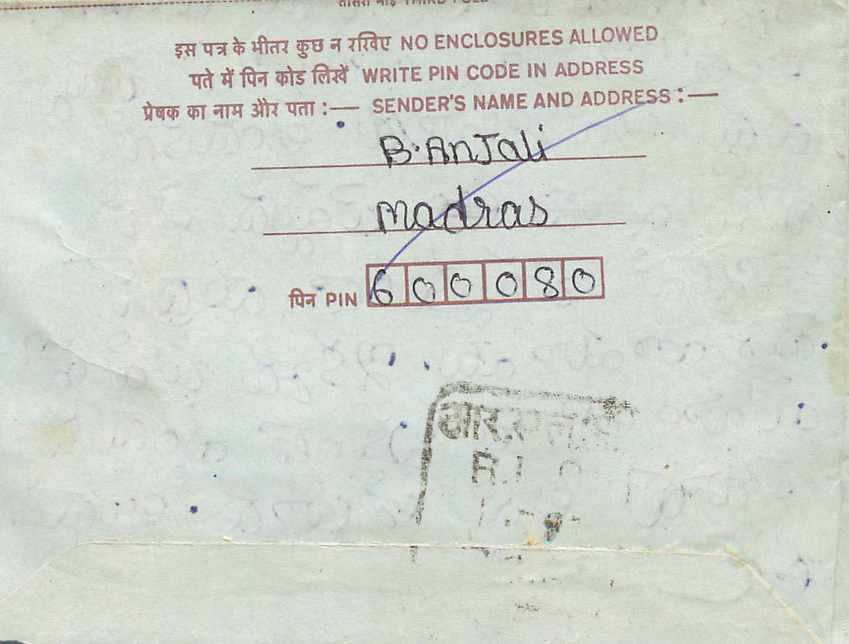 तीसरा मोड़ THIRD FOLD
इस पत्र के भीतर कुछ न रखिए NO ENCLOSURES ALLOWED
पते में पिन कोड लिखें WRITE PIN CODE IN ADDRESS
प्रेषक का नाम और पता :— SENDER'S NAME AND ADDRESS :—
B. Anjali
Madras
पिन PIN 600080
आर.
R.L